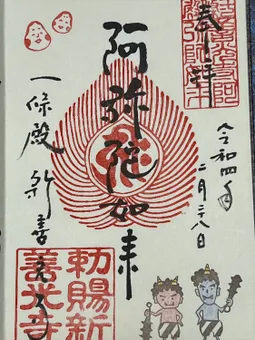 奉拝
令和四年
二月二八日
阿弥陀如来
一條殿 新善光寺
勅賜新
善光寺